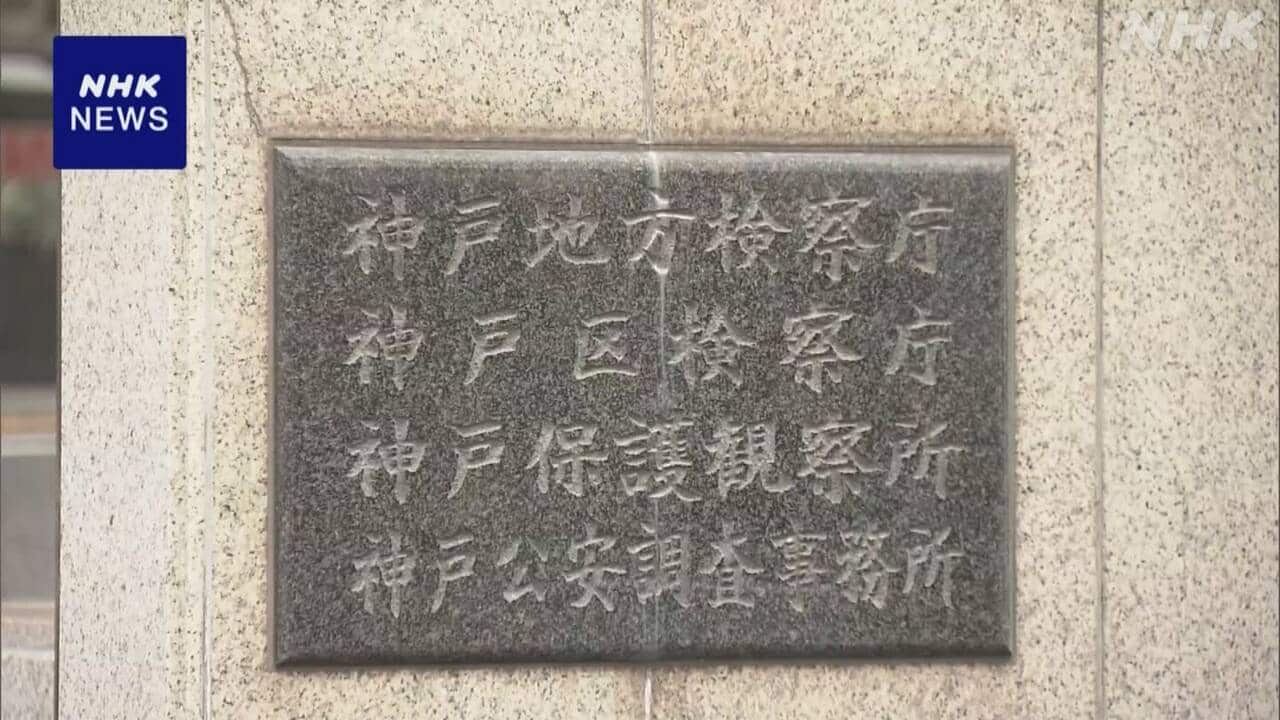 NHK
NHK
NEWS
神戸地方検察庁
神戸区検察庁
神戸保護観察所
神戸公安調査事務所